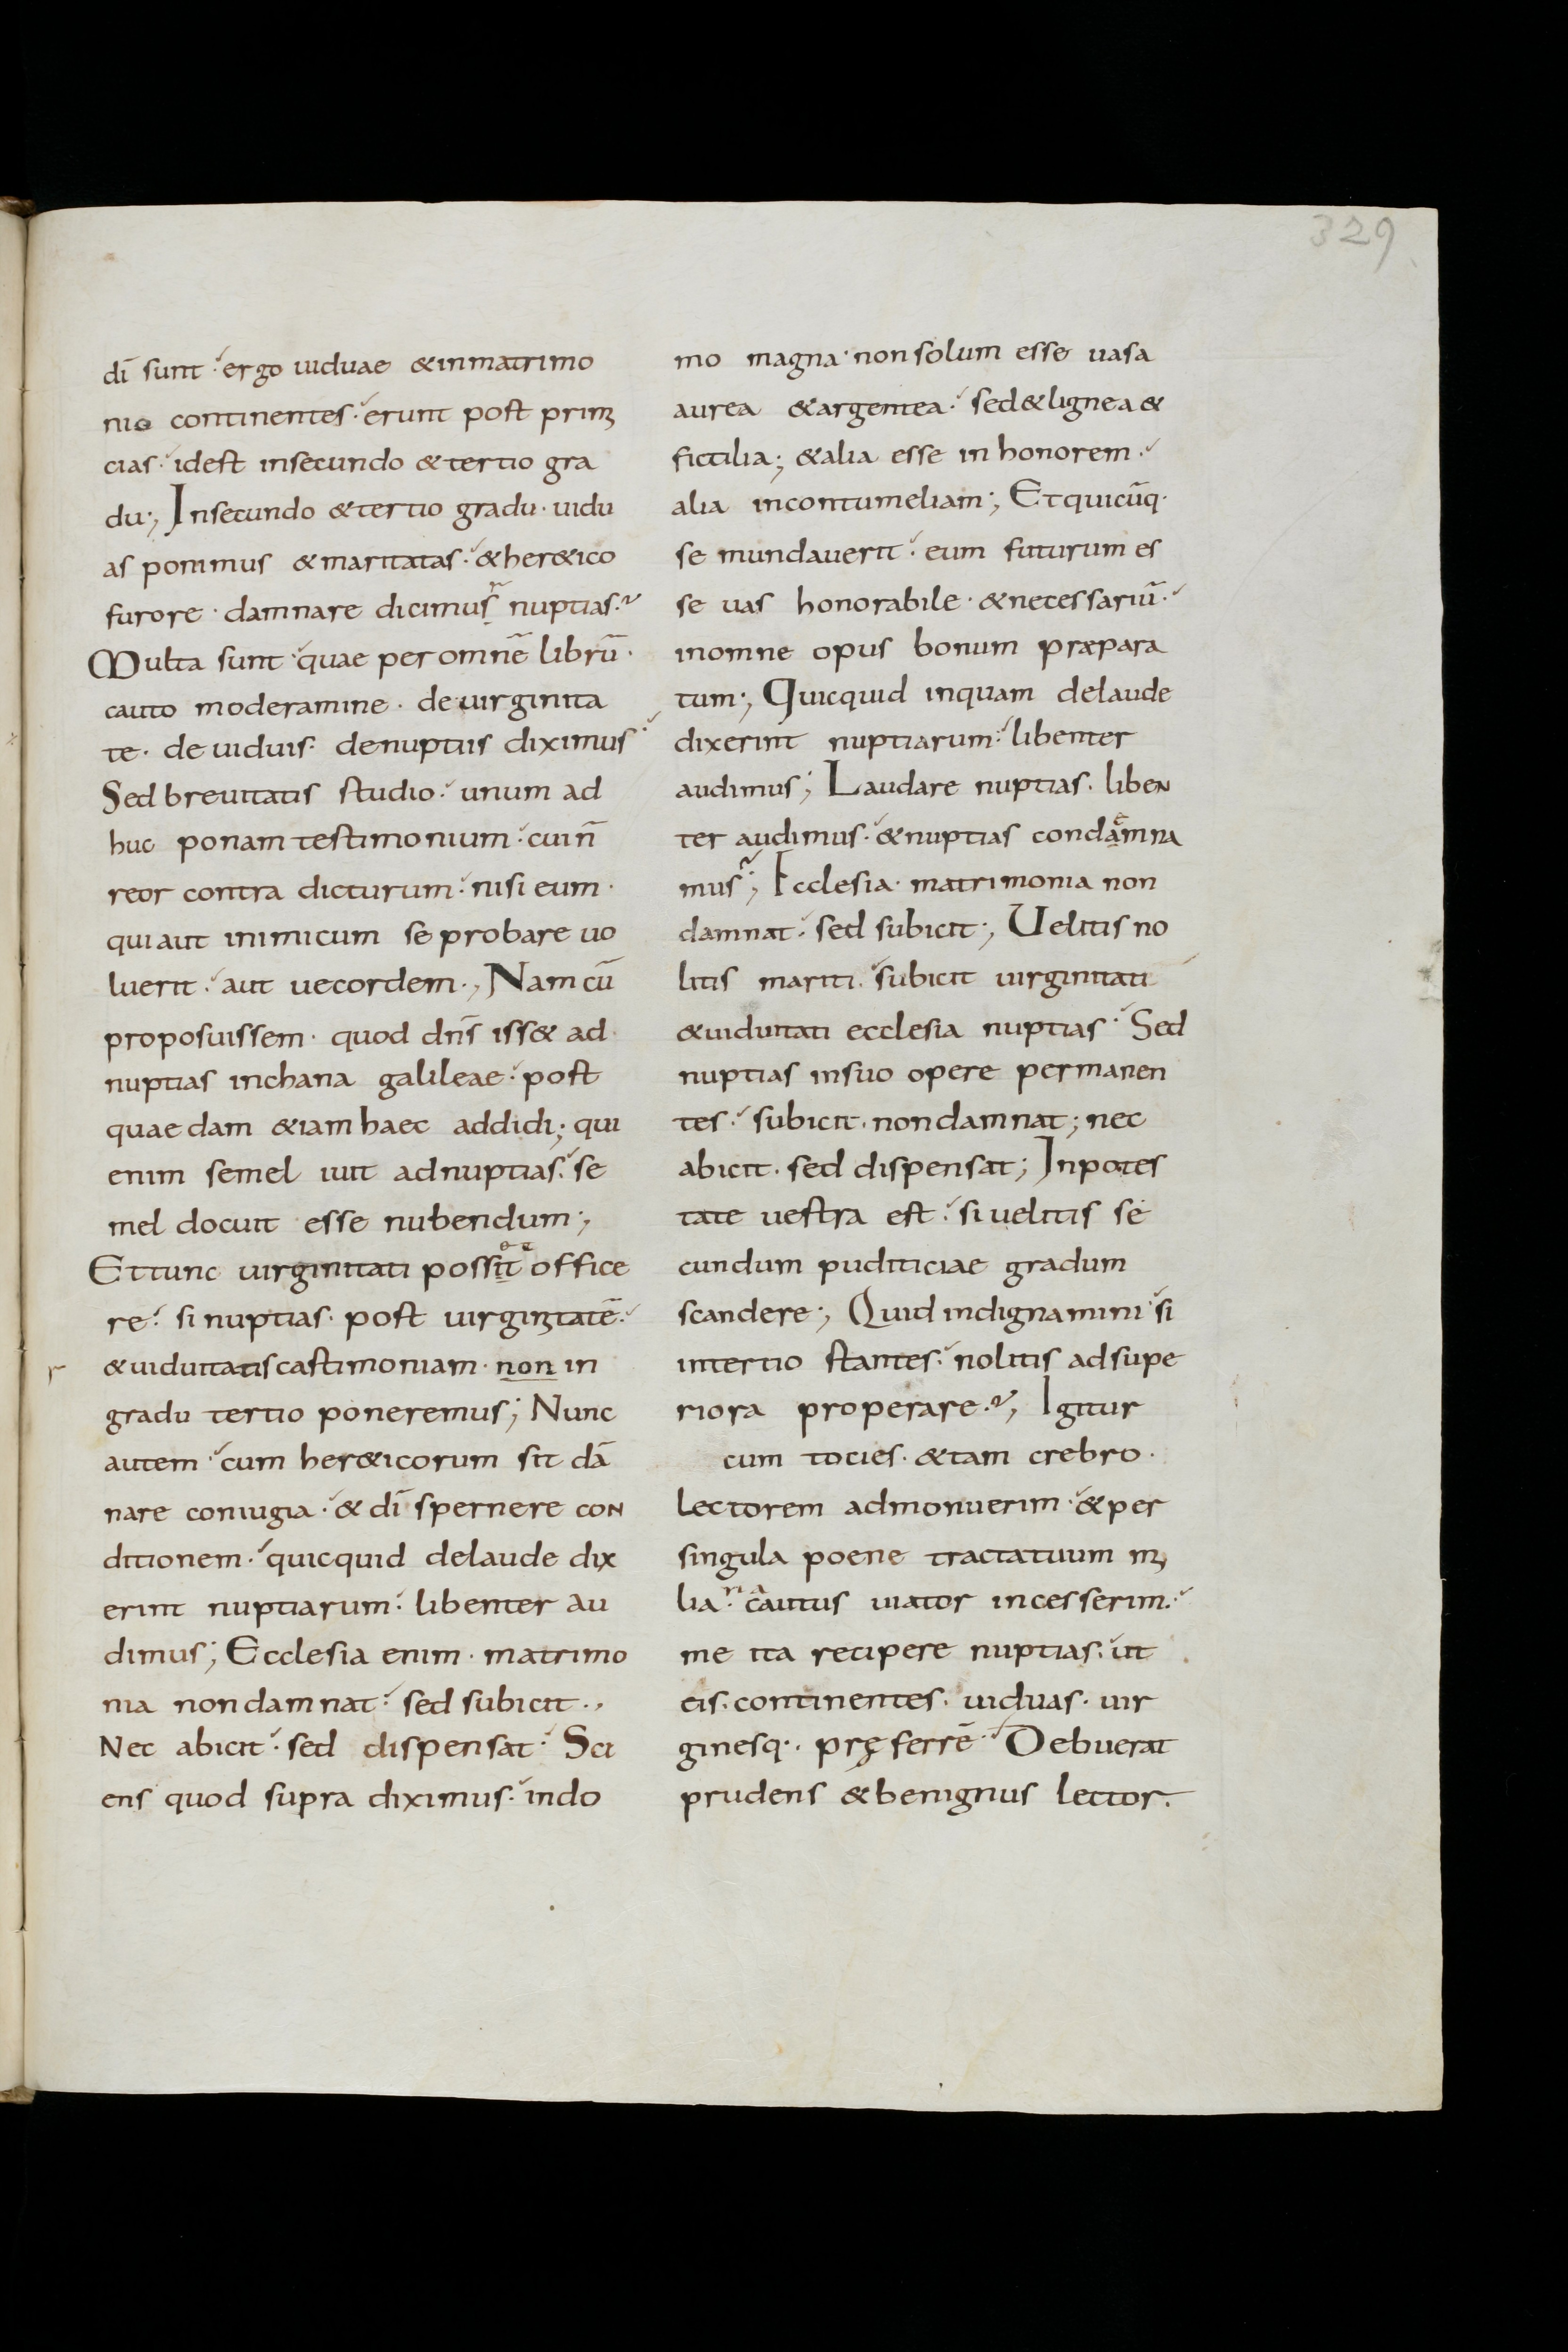 329
dī sunt· ergo uiduae & inmatrimo
nio continentes· erunt post primi
cias· idest insecundo & tertio gra
du; Insecundo & tertio gradu· uidu
as ponimus & maritatas· & her&ico
furore· damnare dicimusr nuptias·?
Multa sunt· quae per omnē librū·
cauto moderamine· de uirginita
te· de uiduis· denuptiis diximus·
Sed breuitatis studio· unum ad
huc ponam testimonium· cui n̄
reor contra dicturum· nisi eum·
qui aut inimicum se probare uo
luerit· aut uecordem·, Nam cū
proposuissem· quod dn̄s iss& ad
nuptias inchana galileae· post
quaedam &iam haec addidi; qui
enim semel iuit ad nuptias· se
mel docuit esse nubendum;
Et tunc uirginitati possit office
re· si nuptias· post uirginitatē·
& uiduitatis castimoniam· non in
gradu tertio poneremus; Nunc
autem· cum her&icorum sit dā
nare coniugia· & dī spernere con
ditionem· quicquid delaude dix
erint nuptiarum· libenter au
dimus; Ecclesia enim· matrimo
nia non damnat· sed subicit·,
Nec abicit· sed dispensat· Sci
ens quod supra diximus· indo
mo magna· non solum esse uasa
aurea & argentea· sed & lignea &
fictilia; & alia esse in honorem·
alia incontumeliam; Et quicūq·
se mundauerit· eum futurum es
se uas honorabile· & necessariū·
inomne opus bonum præpara
tum; Quicquid inquam delaude
dixerint nuptiarum· libenter
audimus; Laudare nuptias· liben
ter audimus· & nuptias condamna
mus; Ecclesia· matrimonia non
damnat· sed subicit; Uelitis no
litis mariti· subicit uirginitati
& uiduitati ecclesia nuptias· Sed
nuptias insuo opere permanen
tes· subicit· non damnat; nec
abicit· sed dispensat; Inpotes
tate uestra est· si uelitis se
cundum puditiciae gradum
scandere; Quid indignamini si
intertio stantes· nolitis adsupe
riora properare·?, Igitur
cum tocies· & tam crebro·
lectorem admonuerim· & per
singula poene tractatuum mi
lia· cautus uiator incesserim·
me ita recipere nuptias· ut
eis· continentes· uiduas· uir
ginesq·· pręferrē· Debuerat
prudens & benignus lector.